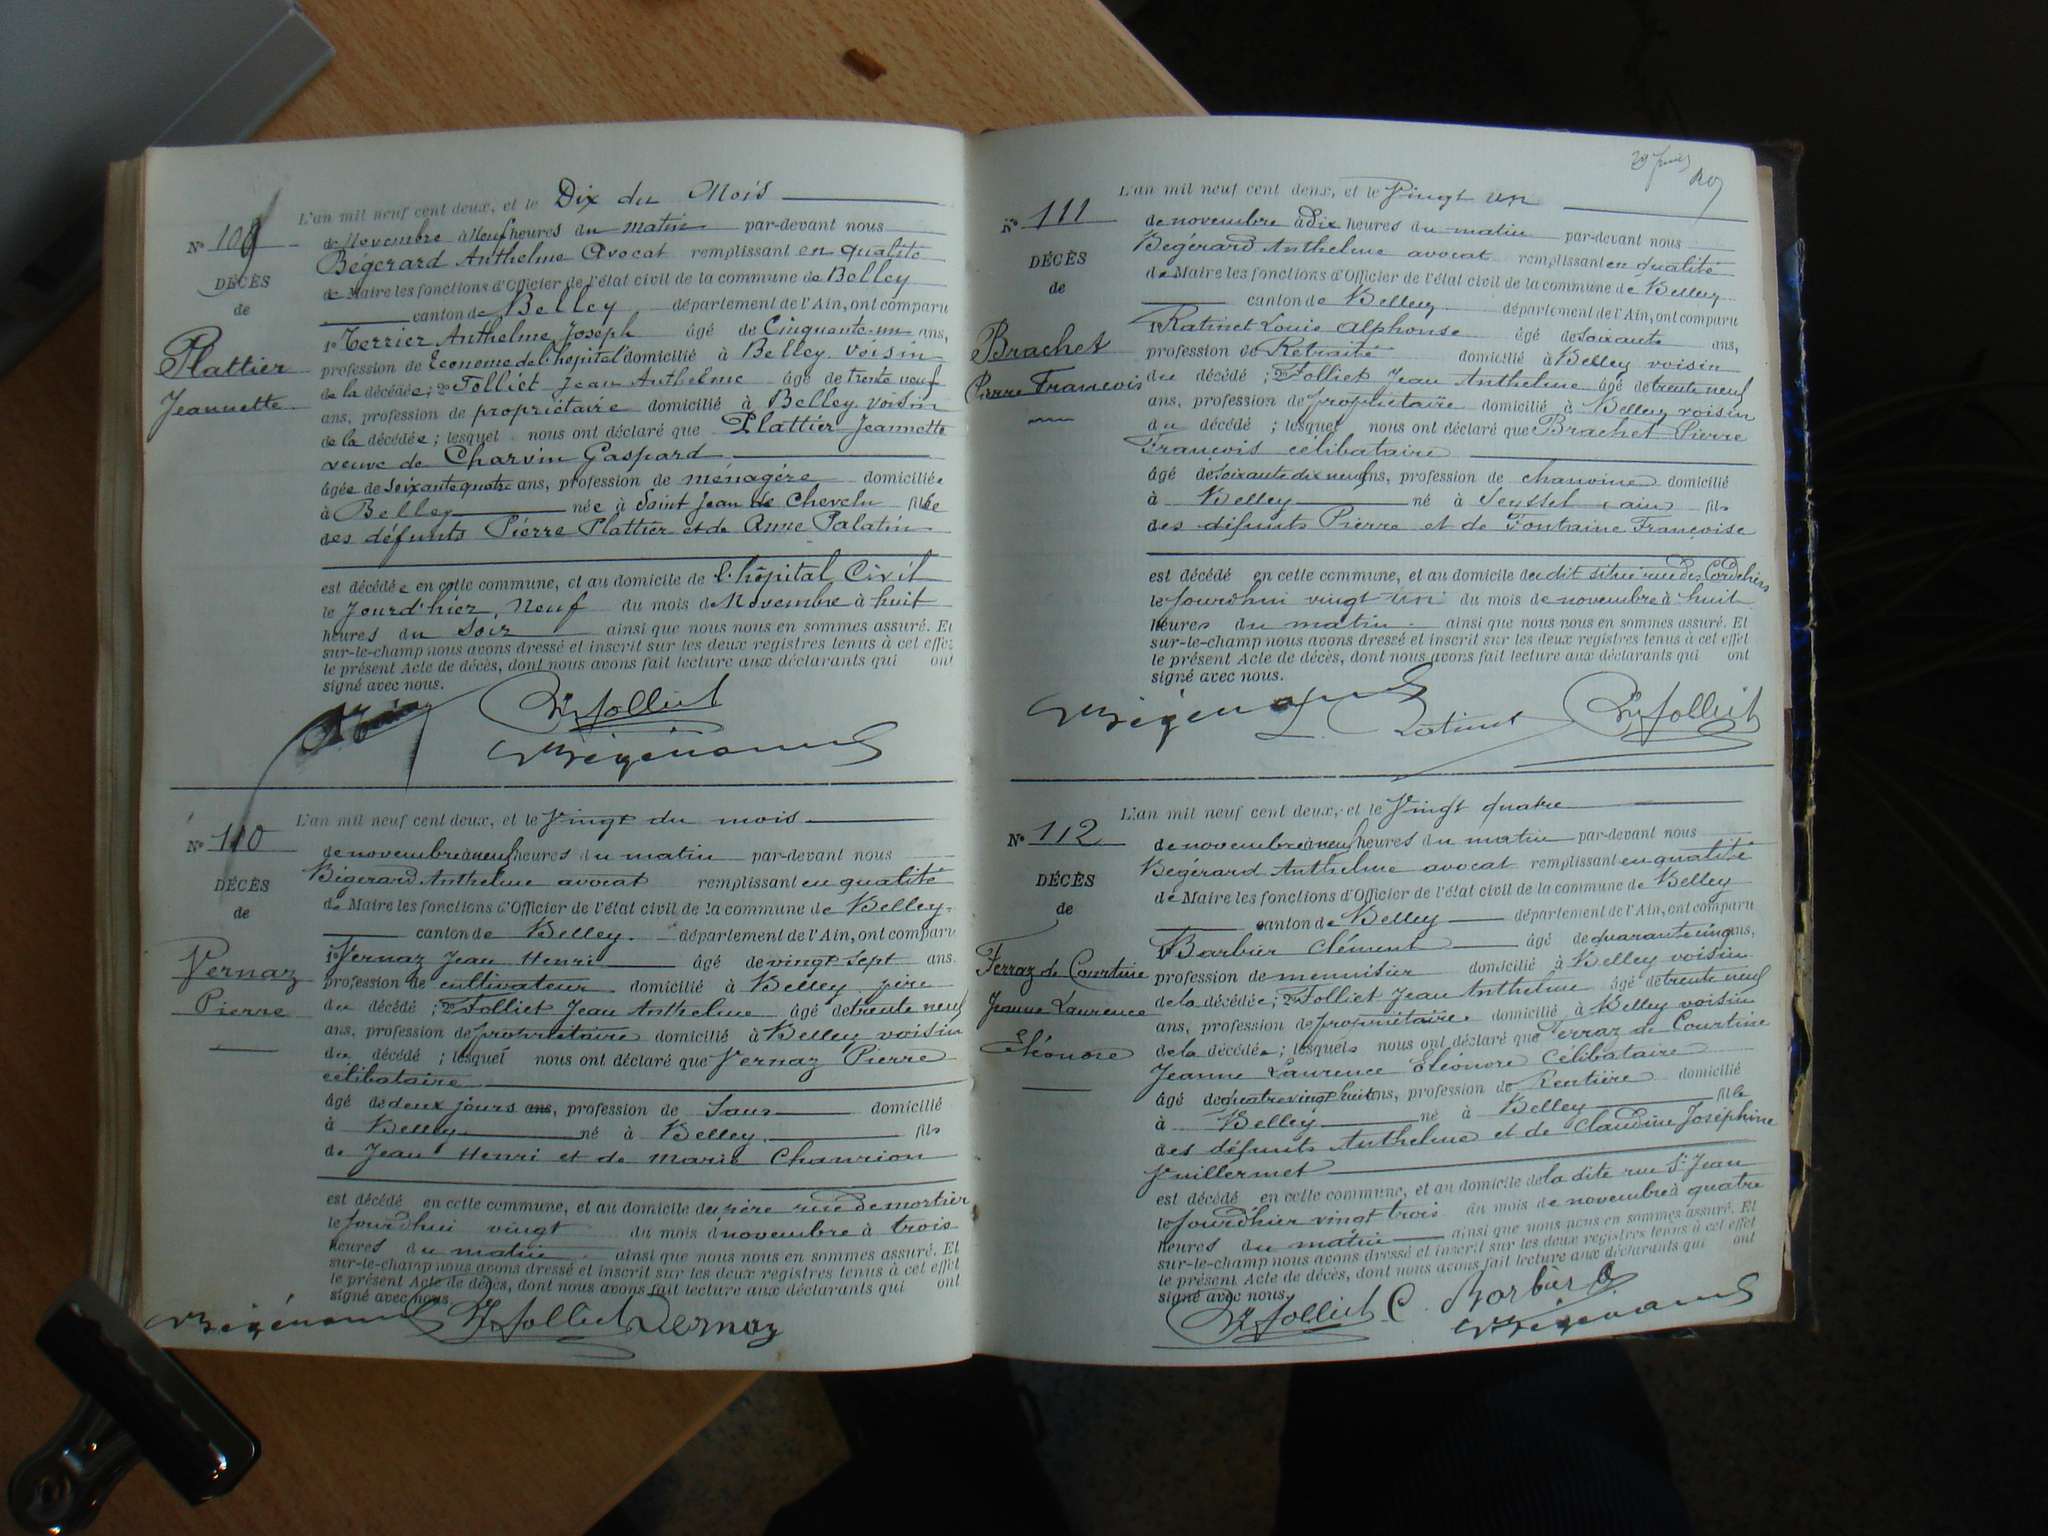 L'an mil neuf cent deux, et le Dix du Mois
N° 109
de Novembre à Neuf heures du matin par-devant nous
Bégerard Anthelme Avocat remplissant en qualité
DÉCÈS
de Maire les fonctions d'Officier de l'état civil de la commune de Belley
de
canton de Belley département de l'Ain, ont comparu
Plattier
Jeannette
1° Terrier Anthelme Joseph âgé de Cinquante-un ans,
profession de Econome de l'hopital domicilié à Belley voisin
de la décédée; 2° Folliet Jean Anthelme âgé de trente neuf
ans, profession de propriétaire domicilié à Belley voisin
de la décédée; lesquel nous ont déclaré que Plattier Jeannette
veuve de Charvin Gaspard
âgée de soixante quatre ans, profession de ménagère domiciliée
à Belley née à Saint Jean de Chevelu fille
des défunts Pierre Plattier et de Anne Palatin
est décédée en cette commune, et au domicile de l'hôpital Civil
le Jourd'hier, Neuf du mois de Novembre à huit
heures du Soir ainsi que nous nous en sommes assuré. Et
sur-le-champ nous avons dressé et inscrit sur les deux registres tenus à cet effet
le présent Acte de décès, dont nous avons fait lecture aux déclarants qui ont
signé avec nous.
Folliet
Bégérard
L'an mil neuf cent deux, et le Vingt du mois
N° 110
de novembre à neuf heures du matin par-devant nous
Bégerard Anthelme avocat remplissant en qualité
DÉCÈS
de Maire les fonctions d'Officier de l'état civil de la commune de Belley
de
canton de Belley département de l'Ain, ont comparu
Vernaz
Pierre
1° Vernaz Jean Henri âgé de vingt sept ans
profession de cultivateur domicilié à Belley père
du décédé; 2° Folliet Jean Anthelme âgé de trente neuf
ans, profession de propriétaire domicilié à Belley voisin
du décédé; lesquel nous ont déclaré que Vernaz Pierre
célibataire
âgé de deux jours ans, profession de Sans domicilié
à Belley né à Belley fils
de Jean Henri et de Marie Chavrion
est décédé en cette commune, et au domicile du père rue de mortier
le Jourdhui vingt du mois de novembre à trois
heures du matin ainsi que nous nous en sommes assuré. Et
sur-le-champ nous avons dressé et inscrit sur les deux registres tenus à cet effet
le présent Acte de décès, dont nous avons fait lecture aux déclarants qui ont
signé avec nous.
Bégérard Folliet Vernaz
L'an mil neuf cent deux, et le Vingt un
N° 111
de novembre à Dix heures du matin par-devant nous
Bégérard Anthelme avocat remplissant en qualité
DÉCÈS
de Maire les fonctions d'Officier de l'état civil de la commune de Belley
de
canton de Belley département de l'Ain, ont comparu
Brachet
Pierre François
1° Ratinet Louis Alphonse âgé de soixante ans,
profession de Retraité domicilié à Belley voisin
du décédé; 2° Folliet Jean Anthelme âgé de trente neuf
ans, profession de propriétaire domicilié à Belley voisin
du décédé; lesquel nous ont déclaré que Brachet Pierre
François célibataire
âgé de soixante dix neuf ans, profession de chanoine domicilié
à Belley né à Seyssel (ain) fils
des défunts Pierre et de Fontaine Françoise
est décédé en cette commune, et au domicile du dit situé rue des Cordeliers
le Jourdhui vingt un du mois de novembre à huit
heures du matin ainsi que nous nous en sommes assuré. Et
sur-le-champ nous avons dressé et inscrit sur les deux registres tenus à cet effet
le présent Acte de décès, dont nous avons fait lecture aux déclarants qui ont
signé avec nous.
Bégérard Ratinet Folliet
L'an mil neuf cent deux, et le Vingt quatre
N° 112
de novembre à neuf heures du matin par-devant nous
Bégérard Anthelme avocat remplissant en qualité
DÉCÈS
de Maire les fonctions d'Officier de l'état civil de la commune de Belley
de
canton de Belley département de l'Ain, ont comparu
Ferraz de Courtine
Jeanne Laurence
Eléonore
1° Barbier Clément âgé de quarante cinq ans,
profession de menuisier domicilié à Belley voisin
de la décédée; 2° Folliet Jean Anthelme âgé de trente neuf
ans, profession de propriétaire domicilié à Belley voisin
de la décédée; lesquels nous ont déclaré que Ferraz de Courtine
Jeanne Laurence Eléonore Célibataire
âgé de quatre vingt huit ans, profession de Rentière domicilié
à Belley né à Belley fille
des défunts Anthelme et de Claudine Joséphine
Vuillermet
est décédé en cette commune, et au domicile de la dite rue St Jean
le Jourdhier vingt trois du mois de novembre à quatre
heures du matin ainsi que nous nous en sommes assuré. Et
sur-le-champ nous avons dressé et inscrit sur les deux registres tenus à cet effet
le présent Acte de décès, dont nous avons fait lecture aux déclarants qui ont
signé avec nous.
Folliet C. Barbier
Bégérard